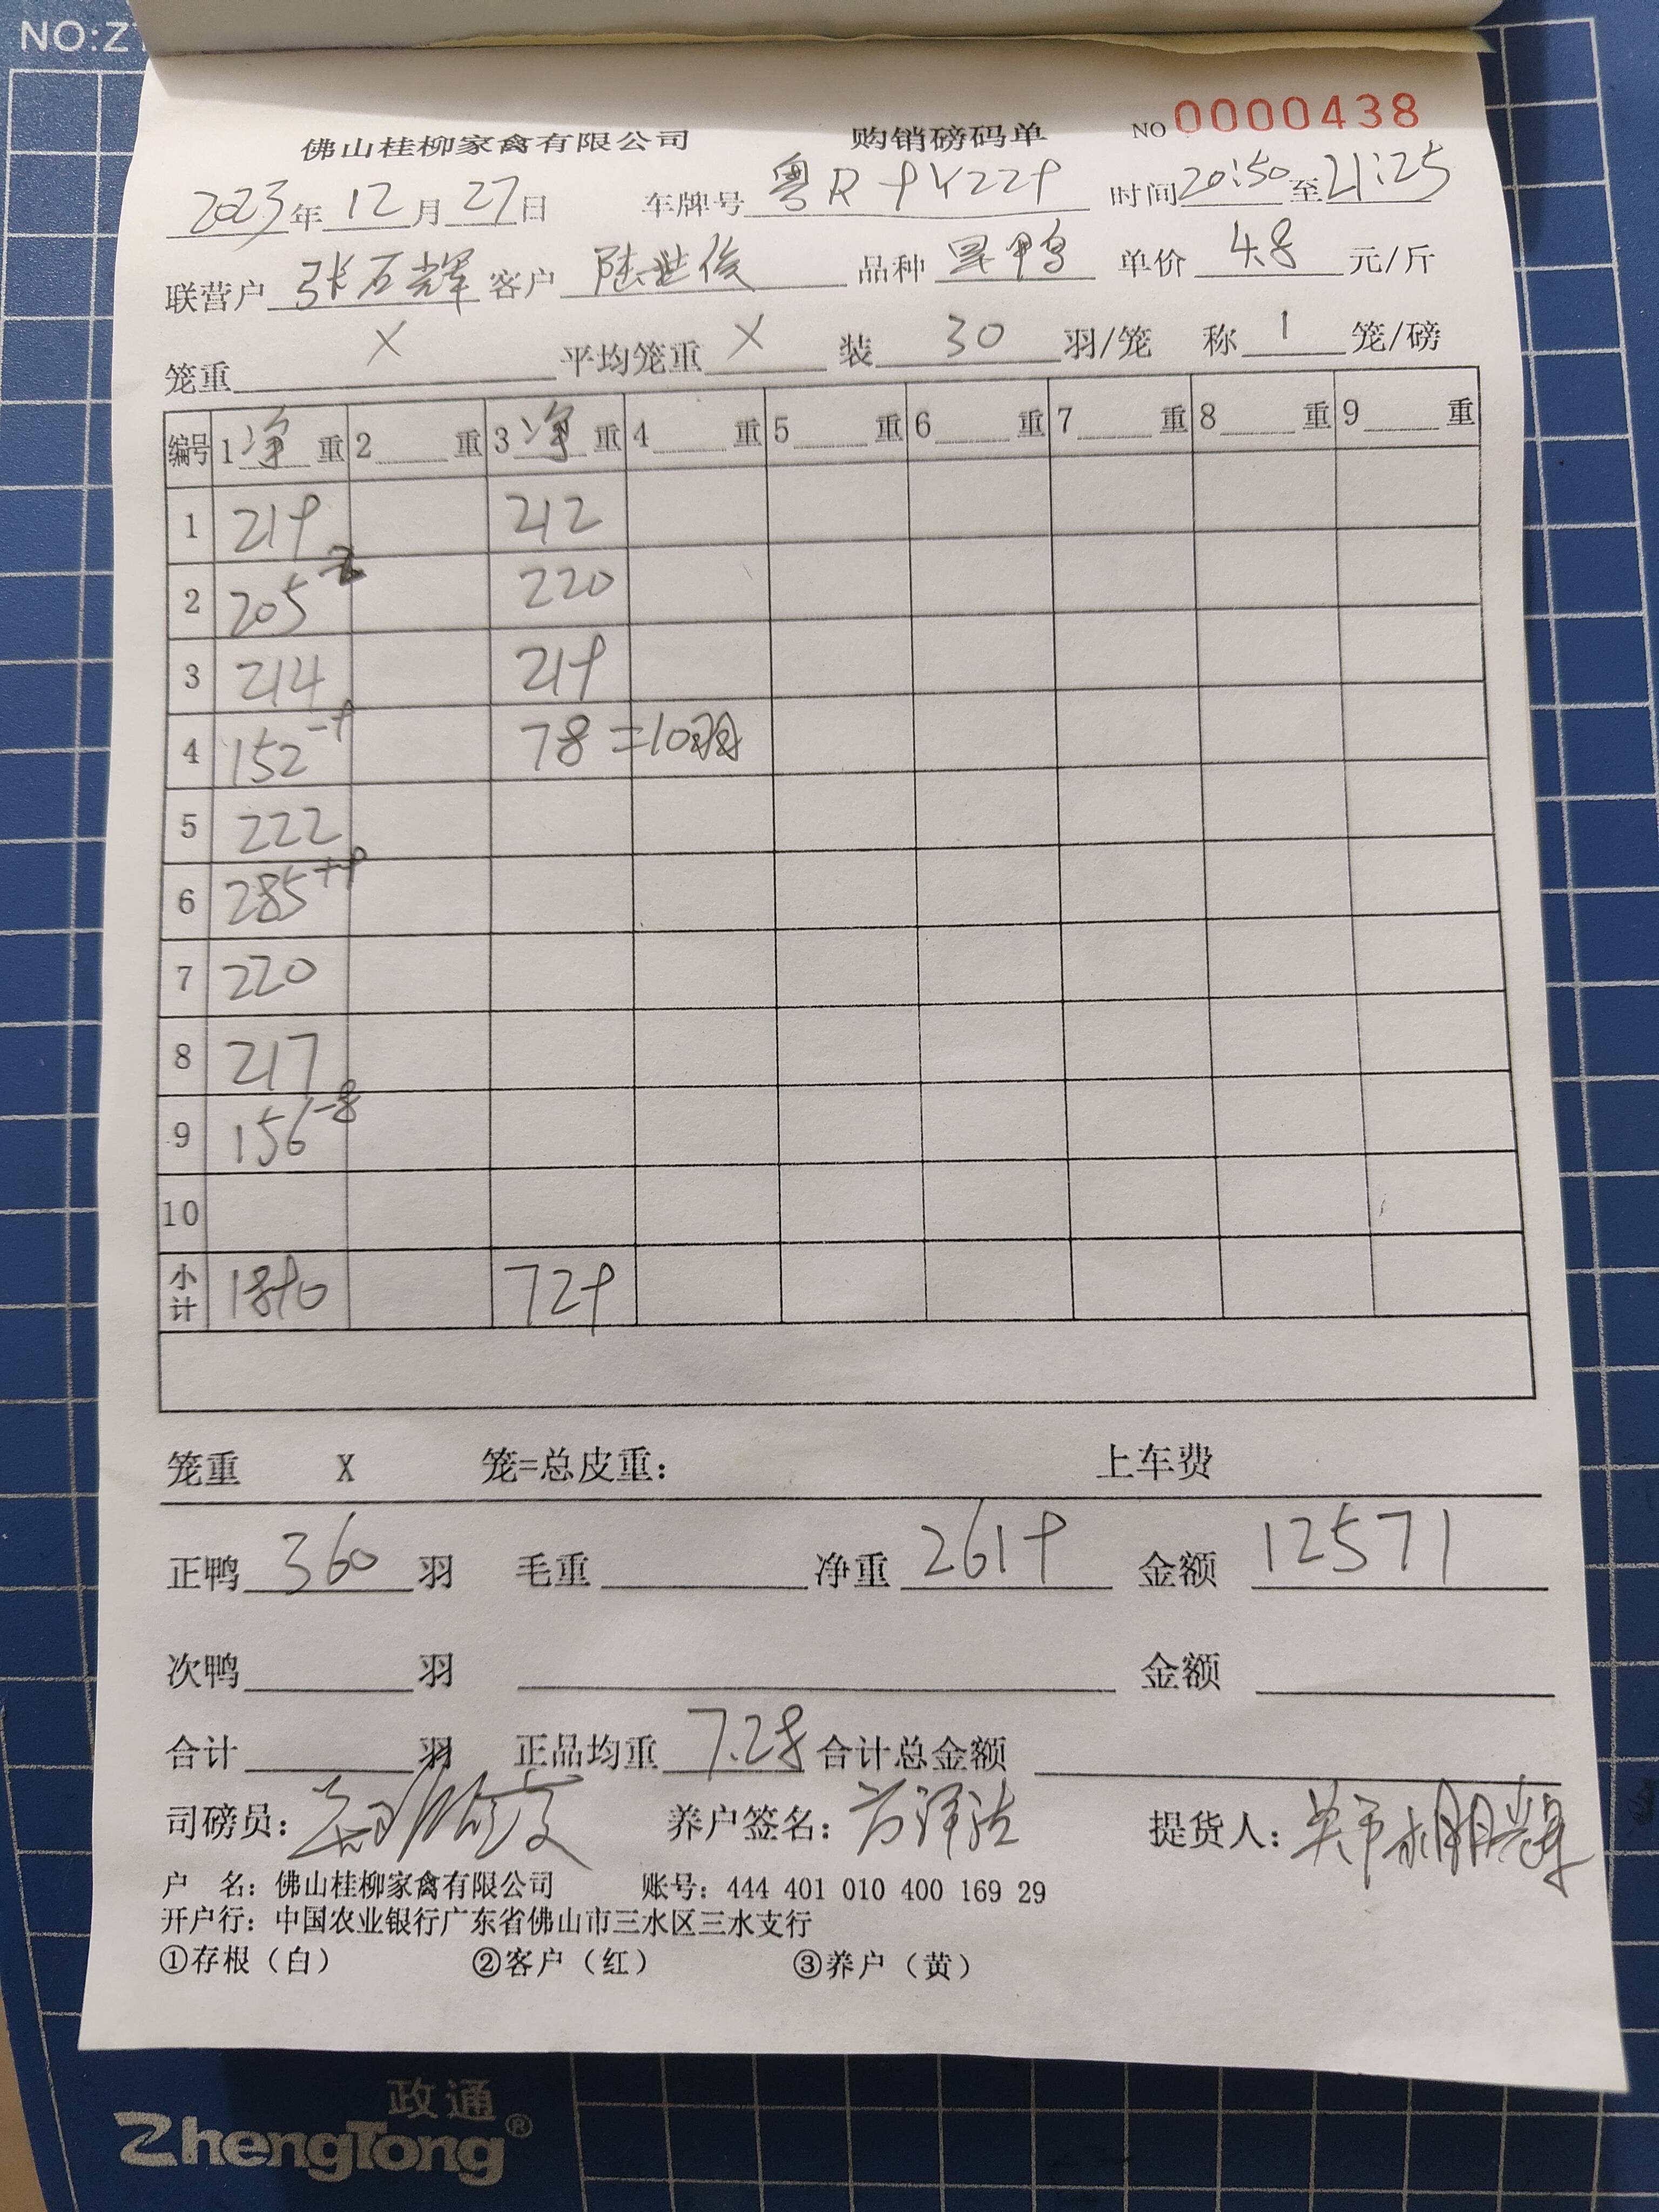 NO:Z
佛山桂柳家禽有限公司 购销磅码单 NO 0000438
2023年12月27日 车牌号 粤R 9Y229 时间20:50至21:25
联营户 张石辉 客户 陆世俊 品种 鸭 单价 4.8 元/斤
笼重 X 平均笼重 X 装 30 羽/笼 称 1 笼/磅
编号 1 净 重 2 重 3 净 重 4 重 5 重 6 重 7 重 8 重 9 重
1 219 212
2 205 -2 220
3 214 219
4 152 -9 78 =10羽
5 222
6 285 +9
7 220
8 217
9 156 -8
10
小计 1890 729
笼重 X 笼=总皮重： 上车费
正鸭 360 羽 毛重 净重 2619 金额 12571
次鸭 羽 金额
合计 羽 正品均重 7.28 合计总金额
司磅员： 养户签名： 提货人：
户 名：佛山桂柳家禽有限公司 账号：444 401 010 400 169 29
开户行：中国农业银行广东省佛山市三水区三水支行
①存根（白） ②客户（红） ③养户（黄）
政通
ZhengTong®